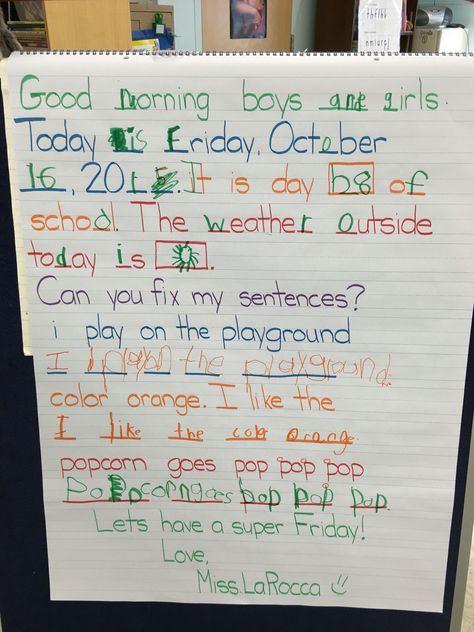 Good morning boys and girls.
Today is Friday, October
16, 2015. It is day b8 of
school. The weather outside
today is
Can you fix my sentences?
i play on the playground
I play on the playground.
color orange. I like the
I like the color orange.
popcorn goes pop pop pop
Popcorn goes pop pop pop.
Lets have a super Friday!
Love,
Miss. LaRocca